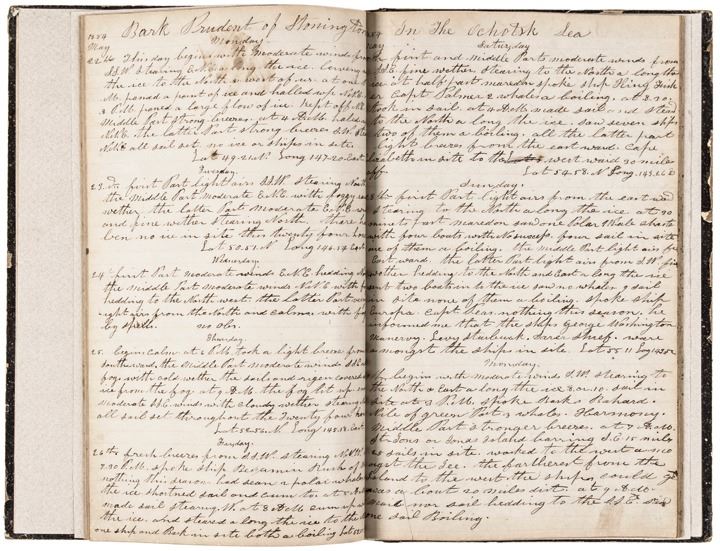 1854 Bark Prudent of Stonington
May Monday
22nd This day begins with moderate winds from
S.S.W. Stearing E.N.E. along the ice. leaving
the ice to the North & west of us. at one
M. passed a point of ice and halled up N.N.E.
3 P.M. passed a large flow of ice. Kept off N.E.
Middle Part Strong breezes. at 4 A.M. halled
N.N.E. the latter Part strong breezes S.W.
N.N.E. all sail set no ice or ships in site.
Lat 49.21 N. Long 147.20 East
Tuesday
23rd first Part light airs S.S.W. stearing North
the Middle Part moderate E.N.E. with foggy
wether, the latter Part moderate E.N.E.
and fine wether stearing North. there has
ben no ice in site this twenty four hours
Lat 50.51 N Long 146.54 East
Wednesday
24 first Part moderate winds E.N.E. hedding
the middle Part moderate winds N.N.E. with
hedding to the North west. the latter Part
light airs from the North and calms with fog
by spells. no obs.
Thursday
25. begins calm at 6 P.M. took a light breeze from
southward, the Middle Part moderate winds S.S.E.
fog, with cold wether. the sails and rigen covered
ice from the fog. at 9 A.M. the fog let up
moderate S.S.E. winds with cloudy wether stearing
all sail set throughout the Twenty four hours
Lat 52.56 N Long 145.18 East
Fryday
26th fresh breezes from S.S.W. stearing N.N.W.
7.30 P.M. spoke ship Benjamin Rush of
nothing this season. had sean a polar whale
the ice shortned sail and cum to. at
made sail stearing W. at 8 A.M. cum up
the ice. and steared along the ice to the
one ship and Bark in site both a boiling Lat
In The Ochotsk Sea
Saturday
first and middle Parts moderate winds from
fine wether. Stearing to the North along the
ice. at half past maredon spoke ship King Fisher
Capt Palmer 2 whales a boiling. at 8.30
took in sail. at 4 A.M. made sail and stood
to the North along the ice. saw seven ships
two of them a boiling. all the latter part
light breeze from the east ward. Cape
in site to the west ward 30 miles
off. Lat 54.58 N Long 143.26 E
Sunday.
first Part light airs from the east ward
stearing to the North along the ice. at 30
minuts past maredon saw one Polar Whale chaste
with four boats, with No success four sail in site
one of them a boiling. the Middle Part light air from
East ward. the latter Part light air from S.W. fine
wether hedding to the North and East along the ice
sent two boats in to the ice saw no whales 9 sail
in site none of them a boiling. spoke ship
Europa. Capt nothing this season, he
informed me that the ships George Washington
Manervy. Levy Starbuck. weare
amongst the ships in site. Lat 55.11 Long
Monday.
begins with moderate winds S.W. stearing to
the North & East along the ice 8 or 10 sail in
site at 3 P.M. spoke Barks Richard.
Isle of green Port 3 whales. Harmony.
Middle Part stronger breezes. at 7 A.M.
St Jons or Jonas Island baring S.E. 15 miles
sails in site. worked to the west amo
ngst the Ice. the fartherest from the
Island to the west the ship could get
was a bout 20 miles dist. at 9 A.M.
ward nor sail hedding to the S.S.E.
one sail Boiling.